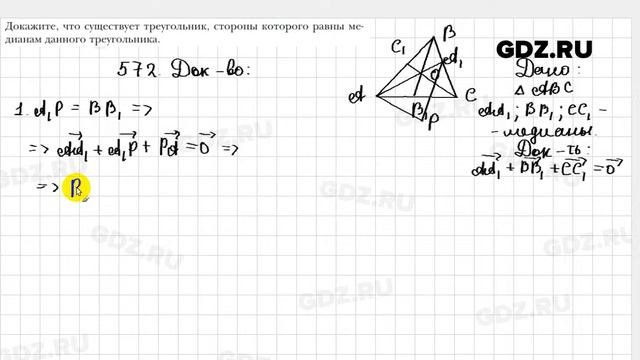 Докажите, что существует треугольник, стороны которого равны ме-
дианам данного треугольника.
572. Док-во:
1. A₁P = BB₁ =>
=> AA₁ + A₁P + PA = 0 =>
=> P
B
C₁
A₁
O
A
C
B₁
P
GDZ.RU
Дано:
△ ABC
AA₁; BB₁; CC₁ -
- медианы.
Док-ть:
AA₁ + BB₁ + CC₁ = 0
GDZ.RU
GDZ.RU
GDZ.RU
GDZ.RU
GDZ.RU